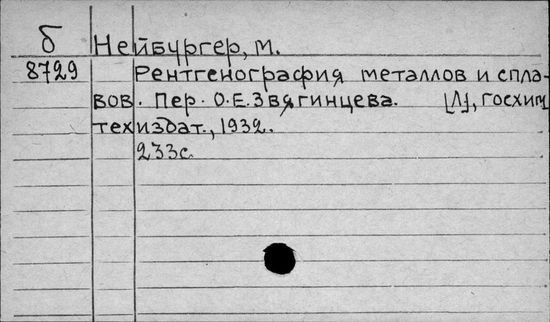 б Нейбургер, М.
8729 Рентгенография металлов и спла-
вов. Пер. О.Е.Звягинцева. [Л], Госхим
техиздат., 1932.
233с.